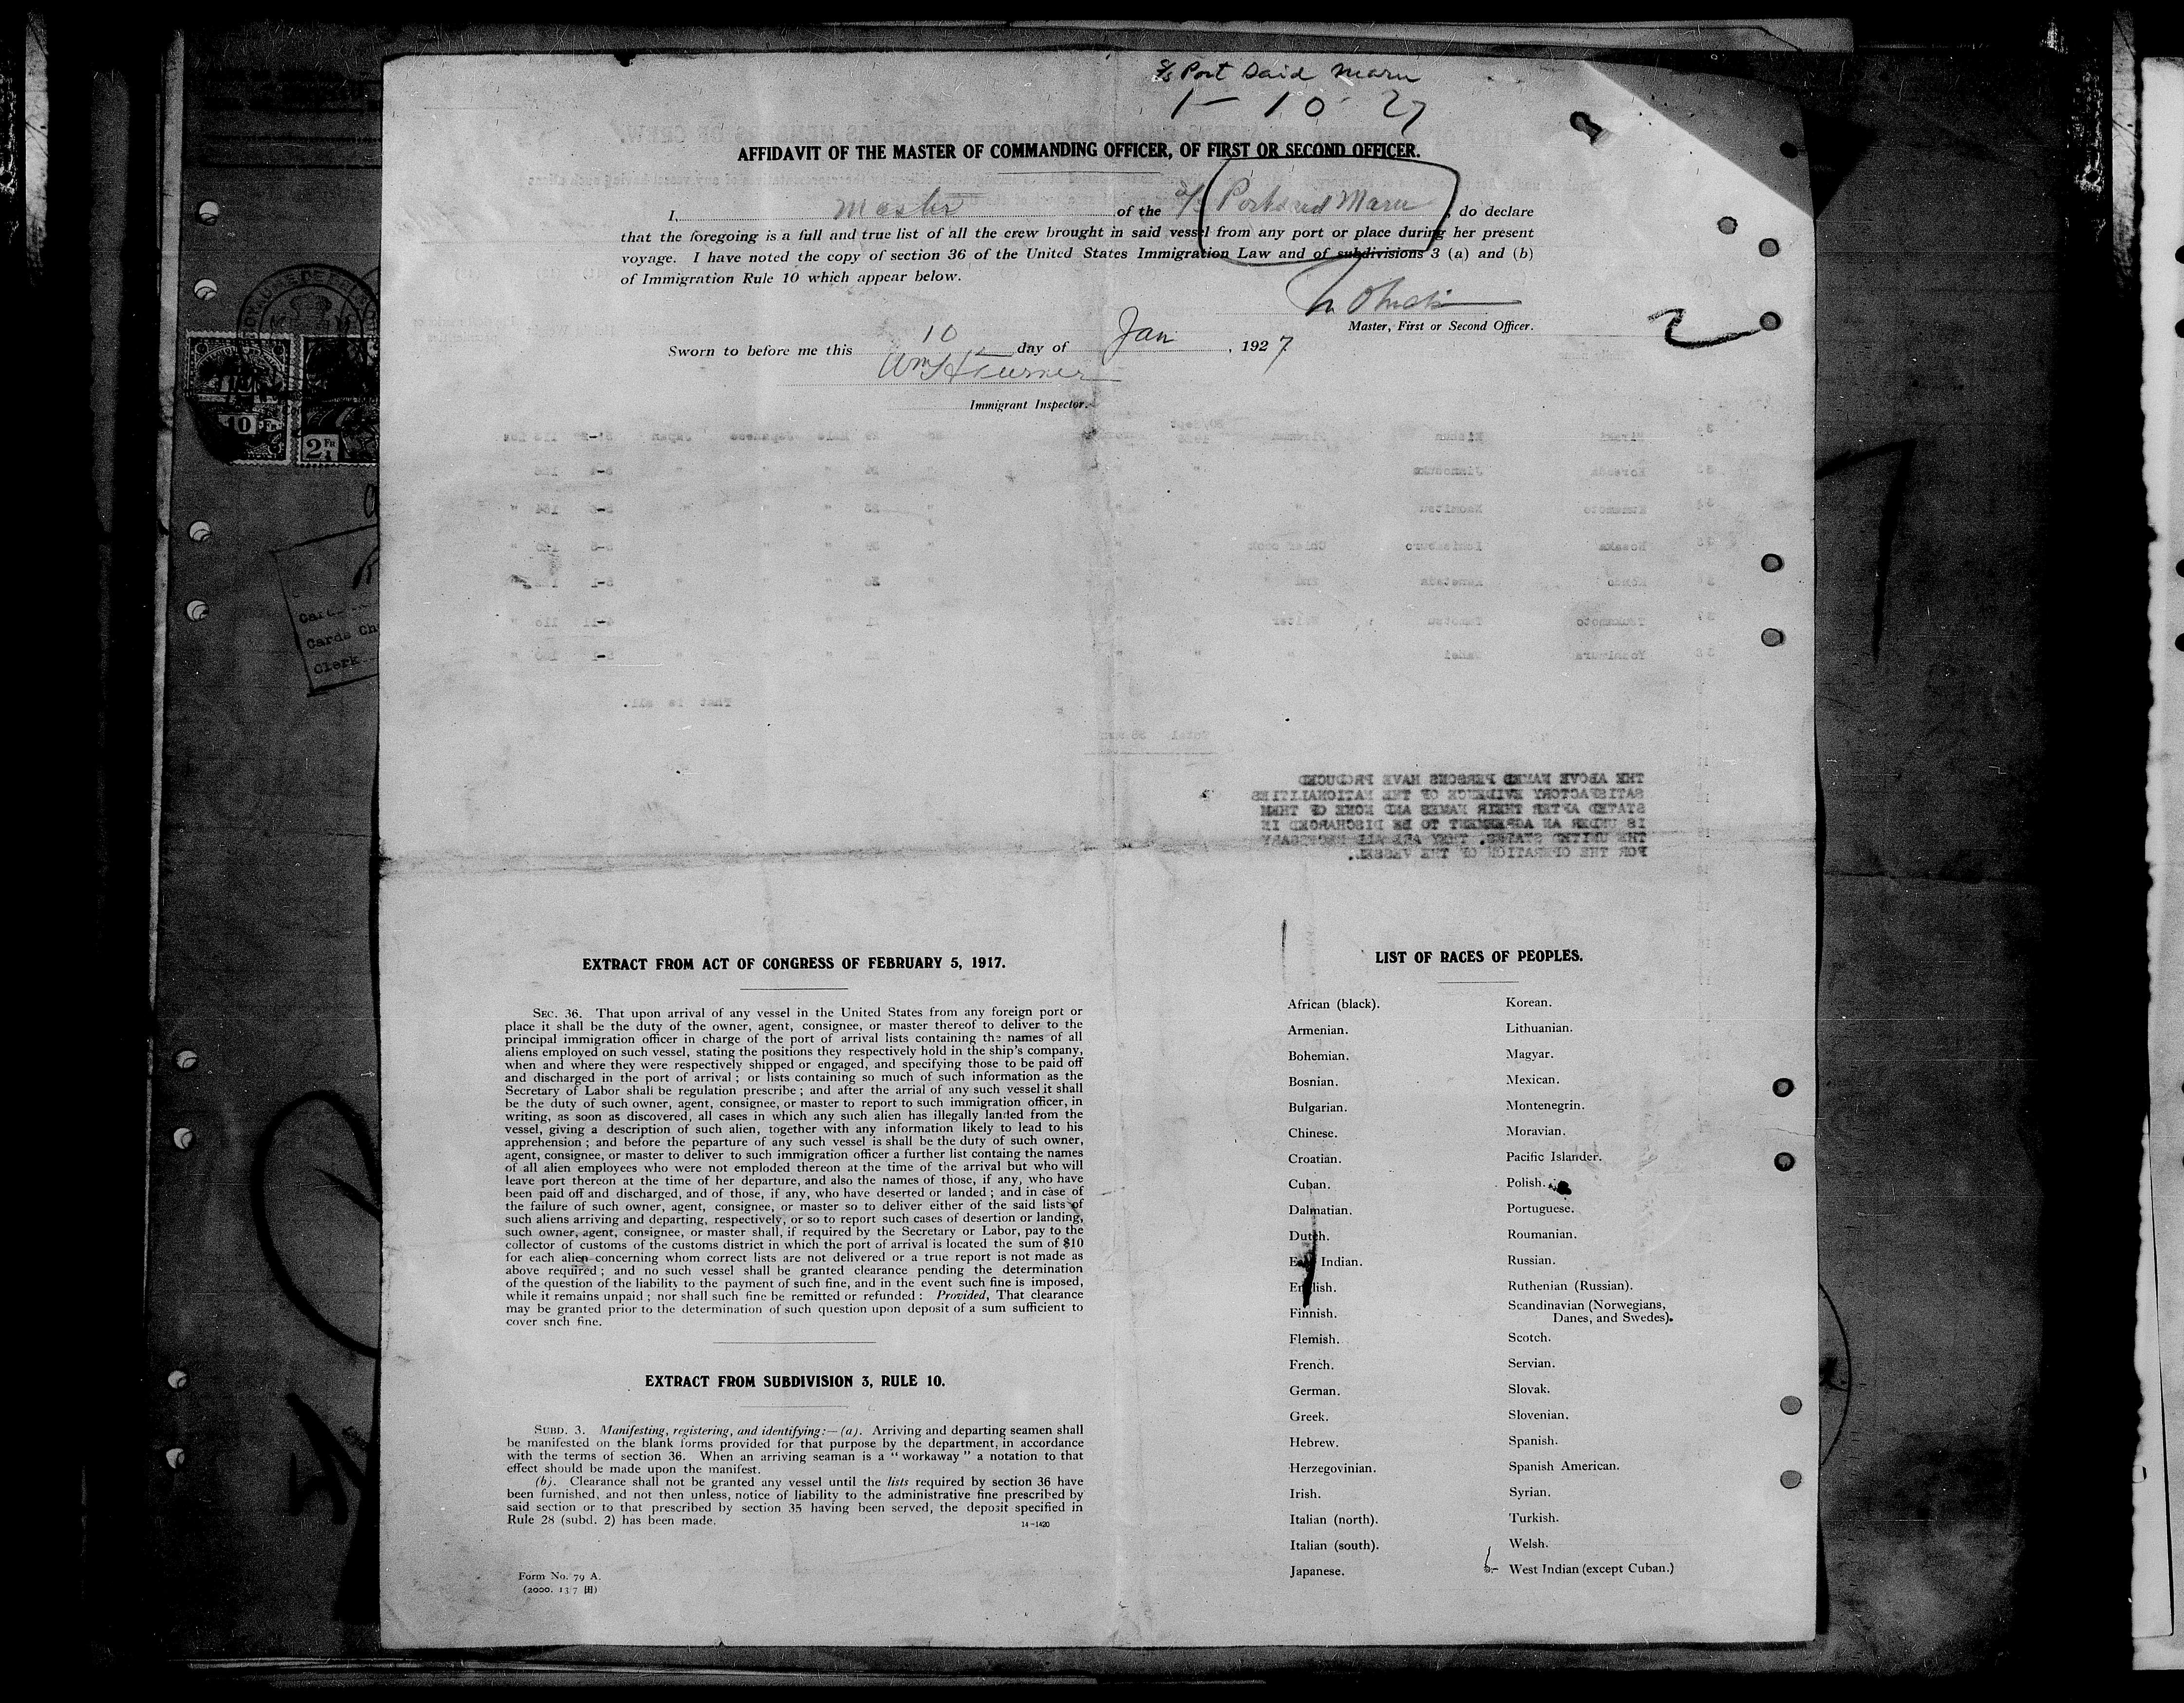 S/S Port Said Maru
1-10-27
AFFIDAVIT OF THE MASTER OF COMMANDING OFFICER, OF FIRST OR SECOND OFFICER.
I, Master of the S/S Portsaid Maru, do declare
that the foregoing is a full and true list of all the crew brought in said vessel from any port or place during her present
voyage. I have noted the copy of section 36 of the United States Immigration Law and of subdivisions 3 (a) and (b)
of Immigration Rule 10 which appear below.
Master, First or Second Officer.
Sworn to before me this 10 day of Jan, 1927
Wm H Turner
Immigrant Inspector.
2
That is all.
Total
THE ABOVE NAMED PERSONS HAVE PRODUCED
SATISFACTORY EVIDENCE OF THE NATIONALITIES
STATED AFTER THEIR NAMES AND NONE OF THEM
IS UNDER AN AGREEMENT TO BE DISCHARGED IN
THE UNITED STATES. THEY ARE ALL NECESSARY
FOR THE OPERATION OF THE VESSEL.
EXTRACT FROM ACT OF CONGRESS OF FEBRUARY 5, 1917.
SEC. 36. That upon arrival of any vessel in the United States from any foreign port or
place it shall be the duty of the owner, agent, consignee, or master thereof to deliver to the
principal immigration officer in charge of the port of arrival lists containing the names of all
aliens employed on such vessel, stating the positions they respectively hold in the ship's company,
when and where they were respectively shipped or engaged, and specifying those to be paid off
and discharged in the port of arrival; or lists containing so much of such information as the
Secretary of Labor shall be regulation prescribe; and after the arrial of any such vessel it shall
be the duty of such owner, agent, consignee, or master to report to such immigration officer, in
writing, as soon as discovered, all cases in which any such alien has illegally landed from the
vessel, giving a description of such alien, together with any information likely to lead to his
apprehension; and before the peparture of any such vessel is shall be the duty of such owner,
agent, consignee, or master to deliver to such immigration officer a further list containg the names
of all alien employees who were not emploded thereon at the time of the arrival but who will
leave port thereon at the time of her departure, and also the names of those, if any, who have
been paid off and discharged, and of those, if any, who have deserted or landed; and in case of
the failure of such owner, agent, consignee, or master so to deliver either of the said lists of
such aliens arriving and departing, respectively, or so to report such cases of desertion or landing,
such owner, agent, consignee, or master shall, if required by the Secretary or Labor, pay to the
collector of customs of the customs district in which the port of arrival is located the sum of $10
for each alien concerning whom correct lists are not delivered or a true report is not made as
above required; and no such vessel shall be granted clearance pending the determination
of the question of the liability to the payment of such fine, and in the event such fine is imposed,
while it remains unpaid; nor shall such fine be remitted or refunded: Provided, That clearance
may be granted prior to the determination of such question upon deposit of a sum sufficient to
cover snch fine.
EXTRACT FROM SUBDIVISION 3, RULE 10.
SUBD. 3. Manifesting, registering, and identifying:—(a). Arriving and departing seamen shall
be manifested on the blank forms provided for that purpose by the department, in accordance
with the terms of section 36. When an arriving seaman is a "workaway" a notation to that
effect should be made upon the manifest.
(b). Clearance shall not be granted any vessel until the lists required by section 36 have
been furnished, and not then unless, notice of liability to the administrative fine prescribed by
said section or to that prescribed by section 35 having been served, the deposit specified in
Rule 28 (subd. 2) has been made.
14-1420
Form No. 79 A.
(2000. 13.7 田)
LIST OF RACES OF PEOPLES.
African (black).
Armenian.
Bohemian.
Bosnian.
Bulgarian.
Chinese.
Croatian.
Cuban.
Dalmatian.
Dutch.
East Indian.
English.
Finnish.
Flemish.
French.
German.
Greek.
Hebrew.
Herzegovinian.
Irish.
Italian (north).
Italian (south).
Japanese.
Korean.
Lithuanian.
Magyar.
Mexican.
Montenegrin.
Moravian.
Pacific Islander.
Polish.
Portuguese.
Roumanian.
Russian.
Ruthenian (Russian).
Scandinavian (Norwegians,
Danes, and Swedes).
Scotch.
Servian.
Slovak.
Slovenian.
Spanish.
Spanish American.
Syrian.
Turkish.
Welsh.
West Indian (except Cuban.)
10 Fr
2 FR
Cards Ch
Clerk